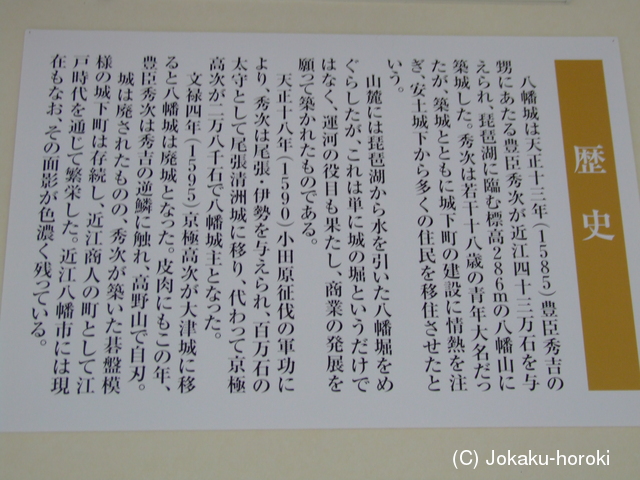 歴史
八幡城は天正十三年（1585）豊臣秀吉の
甥にあたる豊臣秀次が近江四十三万石を与
えられ、琵琶湖に臨む標高286mの八幡山に
築城した。秀次は若干十八歳の青年大名だっ
たが、築城とともに城下町の建設に情熱を注
ぎ、安土城下から多くの住民を移住させたと
いう。
山麓には琵琶湖から水を引いた八幡堀をめ
ぐらしたが、これは単に城の堀というだけで
はなく、運河の役目も果たし、商業の発展を
願って築かれたものである。
天正十八年（1590）小田原征伐の軍功に
より、秀次は尾張、伊勢を与えられ、百万石の
太守として尾張清洲城に移り、代わって京極
高次が二万八千石で八幡城主となった。
文禄四年（1595）京極高次が大津城に移
ると八幡城は廃城となった。皮肉にもこの年、
豊臣秀次は秀吉の逆鱗に触れ、高野山で自刃。
城は廃されたものの、秀次が築いた碁盤模
様の城下町は存続し、近江商人の町として江
戸時代を通じて繁栄した。近江八幡市には現
在もなお、その面影が色濃く残っている。
(C) Jokaku-horoki